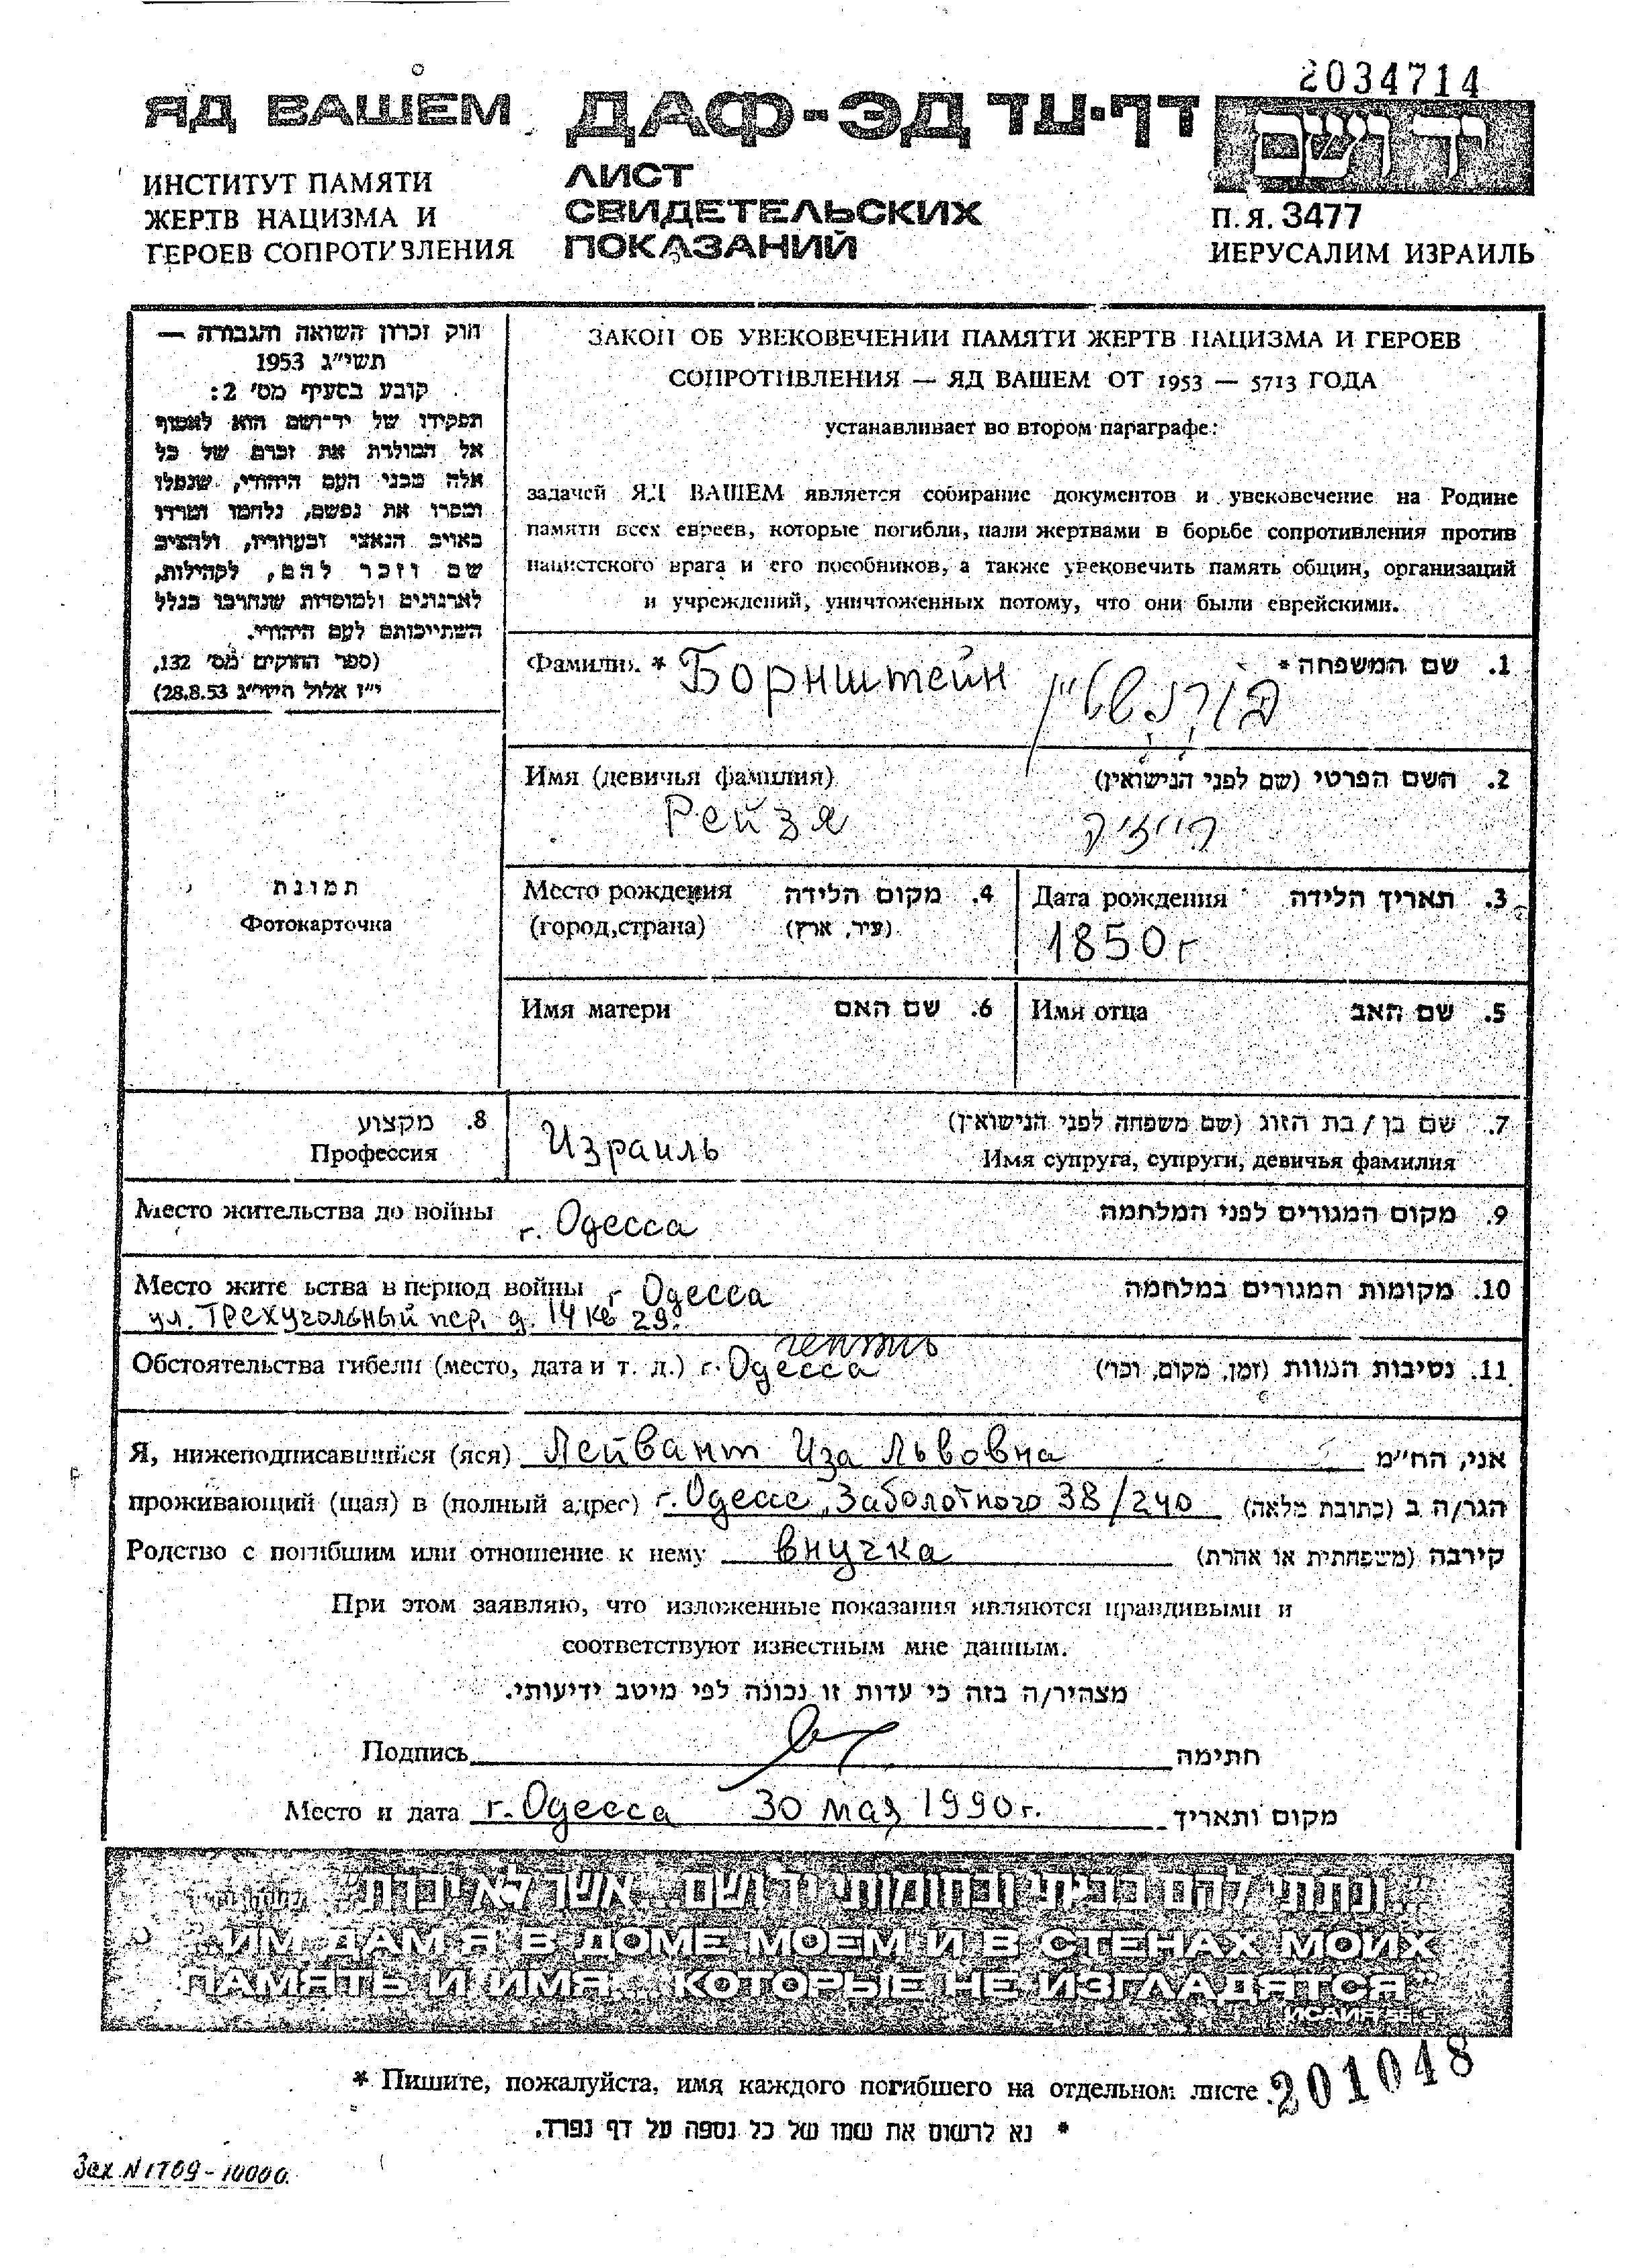 2034714
ЯД ВАШЕМ ДАФ-ЭД דף-עד יד ושם
ИНСТИТУТ ПАМЯТИ
ЖЕРТВ НАЦИЗМА И
ГЕРОЕВ СОПРОТИВЛЕНИЯ
ЛИСТ
СВИДЕТЕЛЬСКИХ
ПОКАЗАНИЙ
П.Я. 3477
ИЕРУСАЛИМ ИЗРАИЛЬ
חוק זכרון השואה והגבורה —
תשי״ג 1953
קובע בסעיף מס׳ 2:
תפקידו של יד־ושם הוא לאסוף
אל המולדת את זכרם של כל
אלה מבני העם היהודי, שנפלו
ומסרו את נפשם, נלחמו ומרדו
באויב הנאצי ובעוזריו, ולהציב
שם וזכר להם, לקהילות,
לארגונים ולמוסדות שנחרבו בגלל
השתייכותם לעם היהודי.
(ספר החוקים מס׳ 132,
י״ז אלול תשי״ג 28.8.53)
ЗАКОН ОБ УВЕКОВЕЧЕНИИ ПАМЯТИ ЖЕРТВ НАЦИЗМА И ГЕРОЕВ
СОПРОТИВЛЕНИЯ — ЯД ВАШЕМ ОТ 1953 — 5713 ГОДА
устанавливает во втором параграфе:
задачей ЯД ВАШЕМ является собирание документов и увековечение на Родине
памяти всех евреев, которые погибли, пали жертвами в борьбе сопротивления против
нацистского врага и его пособников, а также увековечить память общин, организаций
и учреждений, уничтоженных потому, что они были еврейскими.
Фамилия * Борнштейн בורנשטיין 1. שם המשפחה *
Имя (девичья фамилия) 2. השם הפרטי (שם לפני הנישואין)
Рейзя
תמונה
Фотокарточка
Место рождения 4. מקום הלידה
(город,страна) (עיר, ארץ)
Дата рождения 3. תאריך הלידה
1850г
Имя матери 6. שם האם
Имя отца 5. שם האב
8. מקצוע
Профессия
7. שם בן / בת הזוג (שם משפחה לפני הנישואין)
Израиль Имя супруга, супруги, девичья фамилия
Место жительства до войны г. Одесса 9. מקום המגורים לפני המלחמה
Место жите ьства в период войны г Одесса 10. מקומות המגורים במלхמה
ул. Трехугольный пер. д. 14 кв 29.
гетто
Обстоятельства гибели (место, дата и т. д.) г. Одесса 11. נסיבות המוות (זמן, מקום, וכר׳)
Я, нижеподписавшийся (яся) Лейвант Иза Львовна אני, הח״מ
проживающий (щая) в (полный адрес) г. Одессе, Заболотного 38/240 הגר/ה ב (כתובת מלאה)
Родство с погибшим или отношение к нему внучка קירבה (משפחתית או אחרת)
При этом заявляю, что изложенные показания являются правдивыми и
соответствуют известным мне данным.
מצהיר/ה בזה כי עדות זו נכונה לפי מיטב ידיעותי.
Подпись חתימה
Место и дата г. Одесса 30 мая 1990г. מקום ותאריך
״...ונתתי להם בביתי ובחומותי יד ושם... אשר לא יכרת״
"...ИМ ДАМ Я В ДОМЕ МОЕМ И В СТЕНАХ МОИХ
ПАМЯТЬ И ИМЯ... КОТОРЫЕ НЕ ИЗГЛАДЯТСЯ"
ИСАИЯ 56:5
* Пишите, пожалуйста, имя каждого погибшего на отдельном листе.
201048
* נא לרשום את שמו של כל נספה על דף נפרד.
Зак N 1709-10000.